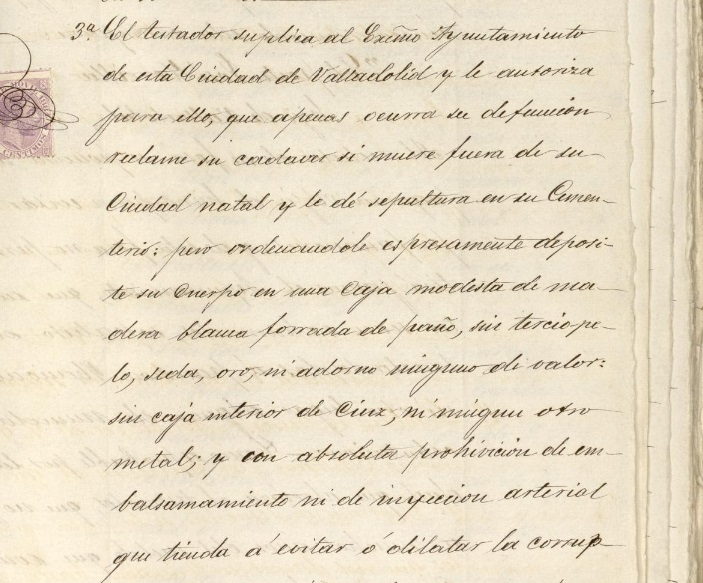 3ª El testador suplica al Exmo Ayuntamiento
de esta Ciudad de Valladolid y le autoriza
para ello, que apenas ocurra su defunción
reclame su cadaver si muere fuera de su
Ciudad natal y le dé sepultura en su Cemen-
terio: pero ordenandole espresamente deposi-
te su Cuerpo en una Caja modesta de ma-
dera blanca forrada de paño, sin terciope-
lo, seda, oro, ni adorno ninguno de valor:
sin caja interior de Cinz, ni ningun otro
metal; y con absoluta prohivición de em-
balsamamiento ni de inyeccion arterial
que tienda á evitar ó dilatar la corrup-